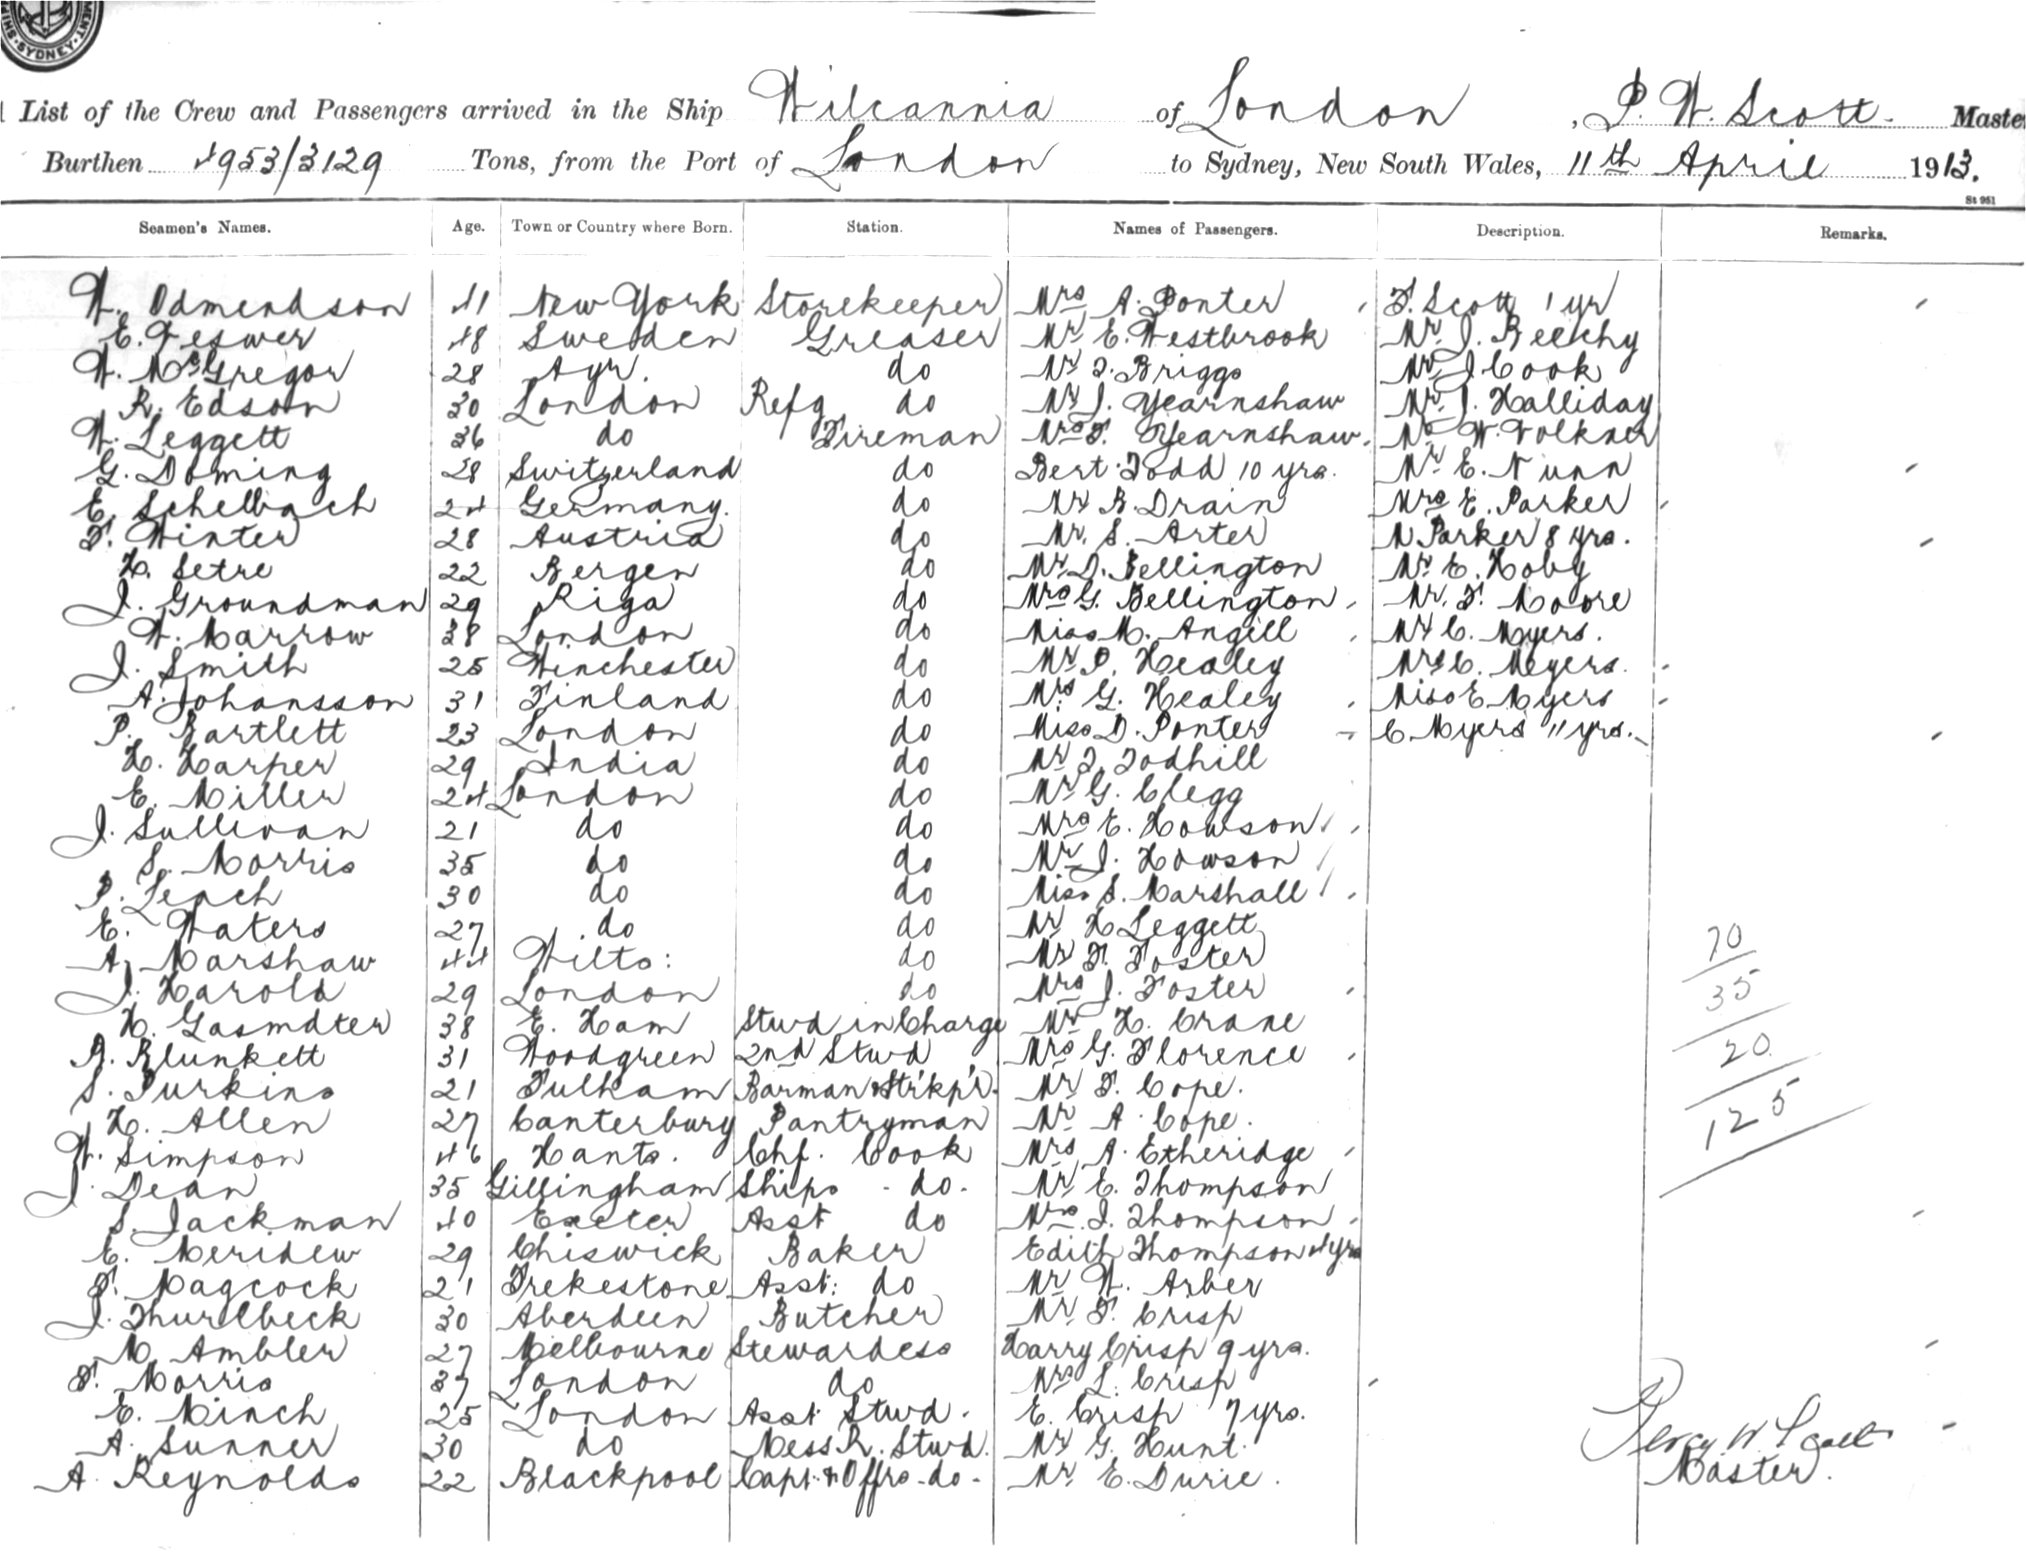 SYDNEY
List of the Crew and Passengers arrived in the Ship Wilcannia of London, P. W. Scott. Maste
Burthen 4953/3129 Tons, from the Port of London to Sydney, New South Wales, 11th April 1913.
St 951
Seamen's Names. Age. Town or Country where Born. Station. Names of Passengers. Description. Remarks.
W. Odmendson 41 New York Storekeeper Mrs A. Ponter F. Scott 1 yr
E. Feswer 48 Sweden Greaser Mr E. Westbrook Mr. J. Beechy
W. McGregor 28 Ayr. do Mr F. Briggs Mr J Cook
R. Edson 30 London Refg do Mr J. Yearnshaw Mr. J. Halliday
W. Leggett 36 do Fireman Mrs F. Yearnshaw. Mr W. Volkner
G. Doming 28 Switzerland do Bert Todd 10 yrs. Mr E. Nunn
E. Schelbach 24 Germany. do Mr B. Drain Mrs E. Parker
F. Winter 28 Austria do Mr. S. Arter N Parker 8 yrs.
H. Setre 22 Bergen do Mr D. Bellington Mr E. Hoby
J. Groundman 29 Riga do Mrs G. Bellington Mr. F. Moore
W. Marrow 38 London do Miss M. Angill Mr C. Myers.
J. Smith 25 Winchester do Mr P. Healey Mrs C. Meyers.
A. Johansson 31 Finland do Mrs G. Healey Miss E Myers
P. Bartlett 23 London do Miss D. Ponter C. Myers 11 yrs.
H. Harper 29 India do Mr J. Todhill
E. Miller 24 London do Mr G. Clegg
J. Sullivan 21 do do Mrs E. Howson
S. Morris 35 do do Mr J. Howson
P. Leach 30 do do Miss S. Marshall
E. Waters 27 do do Mr H Leggett
A. Marshaw 44 Wilts: do Mr F. Foster 70
J. Harold 29 London do Mrs J. Foster 35
H. Gasmdter 38 E. Ham Stwd in Charge Mr H. Crane
A. Blunkett 31 Woodgreen 2nd Stwd Mrs G. Florence 20
S. Purkins 21 Fulham Barman & Str'kp'r. Mr F. Cope.
H. Allen 27 Canterbury Pantryman Mr A. Cope. 125
W. Simpson 46 Hants. Chf. Cook Mrs A. Etheridge
J. Dean 35 Gillingham Ships - do - Mr E. Thompson
S. Jackman 40 Exeter Asst do Mrs. J. Thompson
E. Meridew 29 Chiswick Baker Edith Thompson 4 yrs
F. Magcock 21 Frekestone Asst: do Mr W. Arber
J. Thurlbeck 30 Aberdeen Butcher Mr F. Crisp
M. Ambler 27 Melbourne Stewardess Harry Crisp 9 yrs.
F. Morris 37 London do Mrs L. Crisp
E. Minch 25 London Asst Stwd. E. Crisp 7 yrs. Percy W Scott
A. Sunner 30 do Mess R. Stwd. Mr G. Hunt. Master.
A. Reynolds 22 Blackpool Capt. & Offrs - do - Mr E. Durie.